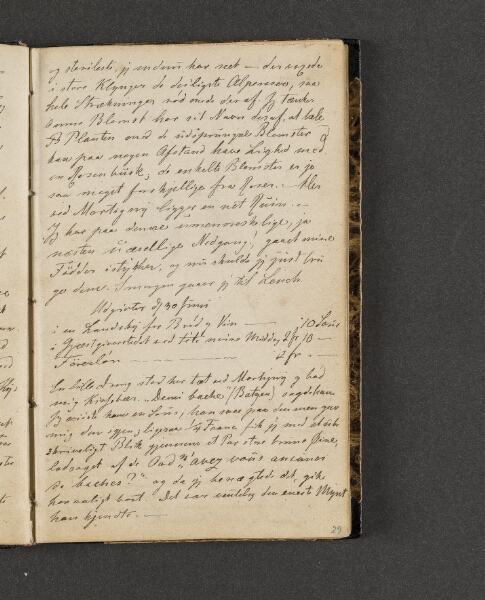 og steileste, jeg endnu har seet — der voxede
i store Klynger de deiligste Alperoser, saa
hele Strækninger vare røde deraf. Jeg tænker
denne Blomst har sit Navn deraf, at hele
Planten med de udsprungne Blomster
kan paa nogen Afstand have Lighed med
en Rosenbusk; de enkelte Blomster er jo
saa meget forskjellige fra Roser. —
ved Martigny ligger en net Ruin. —
Jeg har paa denne umenneskelige, ja
næsten Nedgang, gaaet mine
Fødder istykker, og nu skulde jeg just bru
ge dem. Imorgen gaaer jeg til Leuck.
Udgivter d. 30 Juni
i en Landsby for Brød og Vin — 10 Sous
i Gjæstgiverstedet ved mine Middag 2 fr 10 —
— 2 fr. —
En lille Dreng stod her tæt ved Martigny og bad
mig "Demi baches" (Batzen) sagde han
Jeg viiste ham en Sous, han saae paa den men gav
mig den igjen; fik jeg med et
Blik gjennem et Par brune Øine,
ledsaget af de Ord: "avez vous ancuner
de baches?" og da jeg benægtede det, gik
han roligt bort. Det var den eneste Mynt
han kjendte. —
29